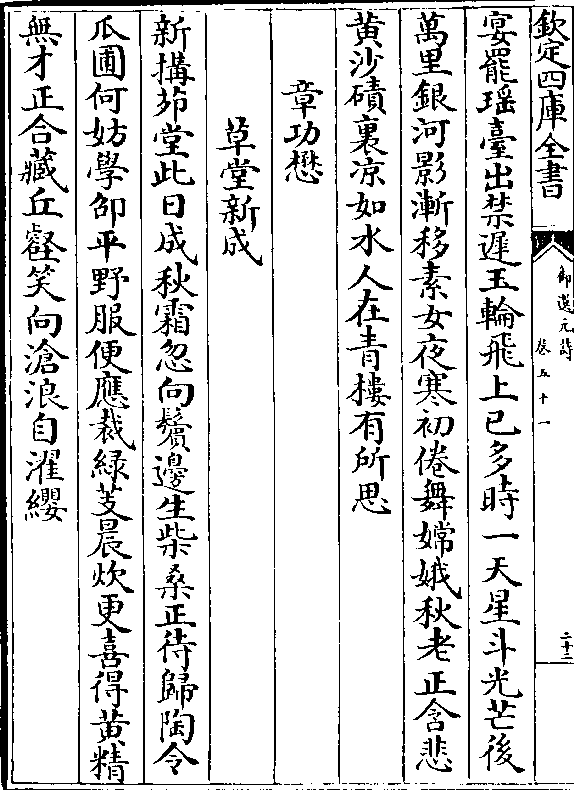 欽定四庫全書
御選元詩
卷五十一
二十二
宴罷瑶臺出禁遲玉輪飛上已多時一天星斗光芒後
萬里銀河影漸移素女夜寒初倦舞嫦娥秋老正含悲
黄沙磧裏凉如水人在青樓有所思
章功懋
草堂新成
新搆茆堂此日成秋霜忽向鬢邊生柴桑正待歸陶令
瓜圃何妨學邵平野服便應裁綠芰晨炊更喜得黄精
無才正合藏丘壑笑向滄浪自濯纓